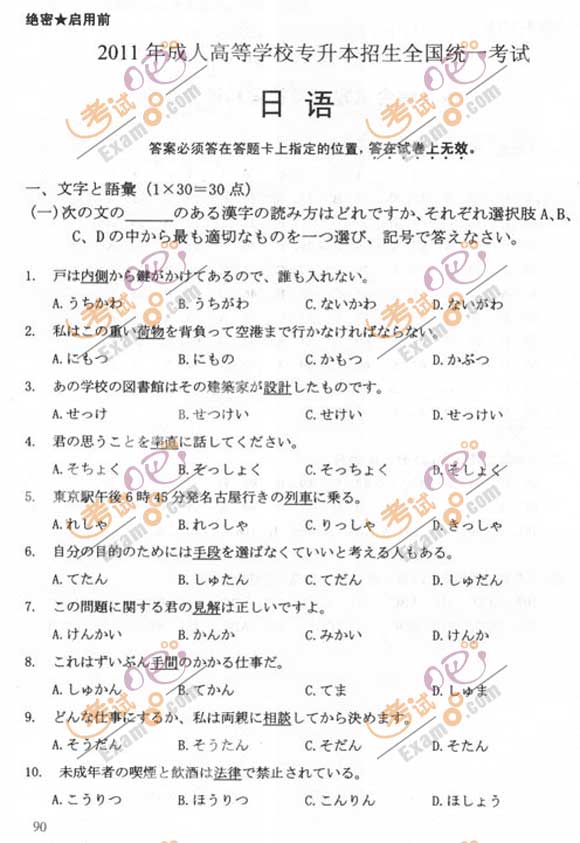 绝密★启用前
2011 年成人高等学校专升本招生全国统一考试
日 语
答案必须答在答题卡上指定的位置，答在试卷上无效。
一、文字と語彙（1×30＝30 点）
(一)次の文の_____のある漢字の読み方はどれですか、それぞれ選択肢 A、B、
C、D の中から最も適切なものを一つ選び、記号で答えなさい。
1. 戸は内側から鍵がかけてあるので、誰も入れない。
A.うちかわ B.うちがわ C.ないかわ D.ないがわ
2. 私はこの重い荷物を背負って空港まで行かなければならない。
A.にもつ B.にもの C.かもつ D.かぶつ
3. あの学校の図書館はその建築家が設計したものです。
A.せっけ B.せつけい C.せけい D.せっけい
4. 君の思うことを率直に話してください。
A.そちょく B.そっしょく C.そっちょく D.そしょく
5. 東京駅午後 6 時 45 分発名古屋行きの列車に乗る。
A.れしゃ B.れっしゃ C.りっしゃ D.きっしゃ
6. 自分の目的のためには手段を選ばなくていいと考える人もある。
A.てたん B.しゅたん C.てだん D.しゅだん
7. この問題に関する君の見解は正しいですよ。
A.けんかい B.かんか C.みかい D.けんか
8. これはずいぶん手間のかかる仕事だ。
A.しゅかん B.てかん C.てま D.しゅま
9. どんな仕事にするか、私は両親に相談してから決めます。
A.そうだん B.そうたん C.そだん D.そたん
10. 未成年者の喫煙と飲酒は法律で禁止されている。
A.こうりつ B.ほうりつ C.こんりん D.ほしょう
90
考试吧
Exam8.com